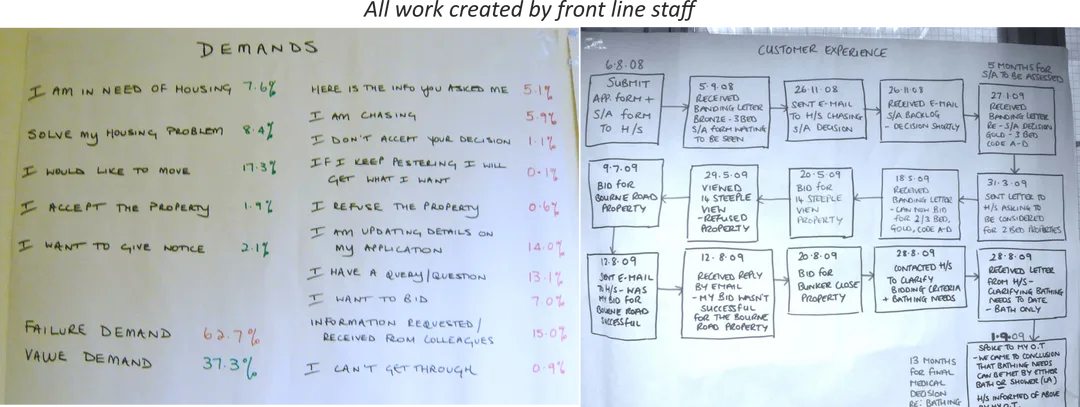 All work created by front line staff
DEMANDS
I AM IN NEED OF HOUSING 7.6%
SOLVE MY HOUSING PROBLEM 8.4%
I WOULD LIKE TO MOVE 17.3%
I ACCEPT THE PROPERTY 1.9%
I WANT TO GIVE NOTICE 2.1%
FAILURE DEMAND 62.7%
VALUE DEMAND 37.3%
HERE IS THE INFO YOU ASKED ME 5.1%
I AM CHASING 5.9%
I DON'T ACCEPT YOUR DECISION 1.1%
IF I KEEP PESTERING I WILL
GET WHAT I WANT 0.1%
I REFUSE THE PROPERTY 0.6%
I AM UPDATING DETAILS ON
MY APPLICATION 14.0%
I HAVE A QUERY/QUESTION 13.1%
I WANT TO BID 7.0%
INFORMATION REQUESTED/
RECEIVED FROM COLLEAGUES 15.0%
I CAN'T GET THROUGH 0.9%
CUSTOMER EXPERIENCE
5 MONTHS FOR
S/A TO BE ASSESSED
6.8.08
SUBMIT
APP. FORM +
S/A FORM
TO H/S
5.9.08
RECEIVED
BANDING LETTER
BRONZE - 3 BED
S/A FORM WAITING
TO BE SEEN
26.11.08
SENT E-MAIL
TO H/S CHASING
S/A DECISION
26.11.08
RECEIVED E-MAIL
S/A BACKLOG
- DECISION SHORTLY
27.1.09
RECEIVED
BANDING LETTER
RE - S/A DECISION
GOLD - 3 BED
CODE A-D
31.3.09
SENT LETTER TO
H/S ASKING TO
BE CONSIDERED
FOR 2 BED PROPERTIES
18.5.09
RECEIVED
BANDING LETTER
- CAN NOW BID
FOR 2/3 BED,
GOLD, CODE A-D
20.5.09
BID FOR
14 STEEPLE
VIEW
PROPERTY
29.5.09
VIEWED
14 STEEPLE
VIEW
- REFUSED
PROPERTY
9.7.09
BID FOR
BOURNE ROAD
PROPERTY
12.8.09
SENT E-MAIL
TO H/S - WAS
MY BID FOR
BOURNE ROAD
SUCCESSFUL
12.8.09
RECEIVED REPLY
BY EMAIL
- MY BID WASN'T
SUCCESSFUL
FOR THE BOURNE
ROAD PROPERTY
20.8.09
BID FOR
BUNKER CLOSE
PROPERTY
28.8.09
CONTACTED H/S
TO CLARIFY
BIDDING CRITERIA
+ BATHING NEEDS
28.8.09
RECEIVED LETTER
FROM H/S -
CLARIFYING BATHING
NEEDS TO DATE
- BATH ONLY
1.9.09
SPOKE TO MY O.T
- WE CAME TO CONCLUSION
THAT BATHING NEEDS
CAN BE MET BY EITHER
BATH OR SHOWER (LA)
H/S INFORMED OF ABOVE
BY MY O.T
13 MONTHS
FOR FINAL
MEDICAL
DECISION
RE: BATHING